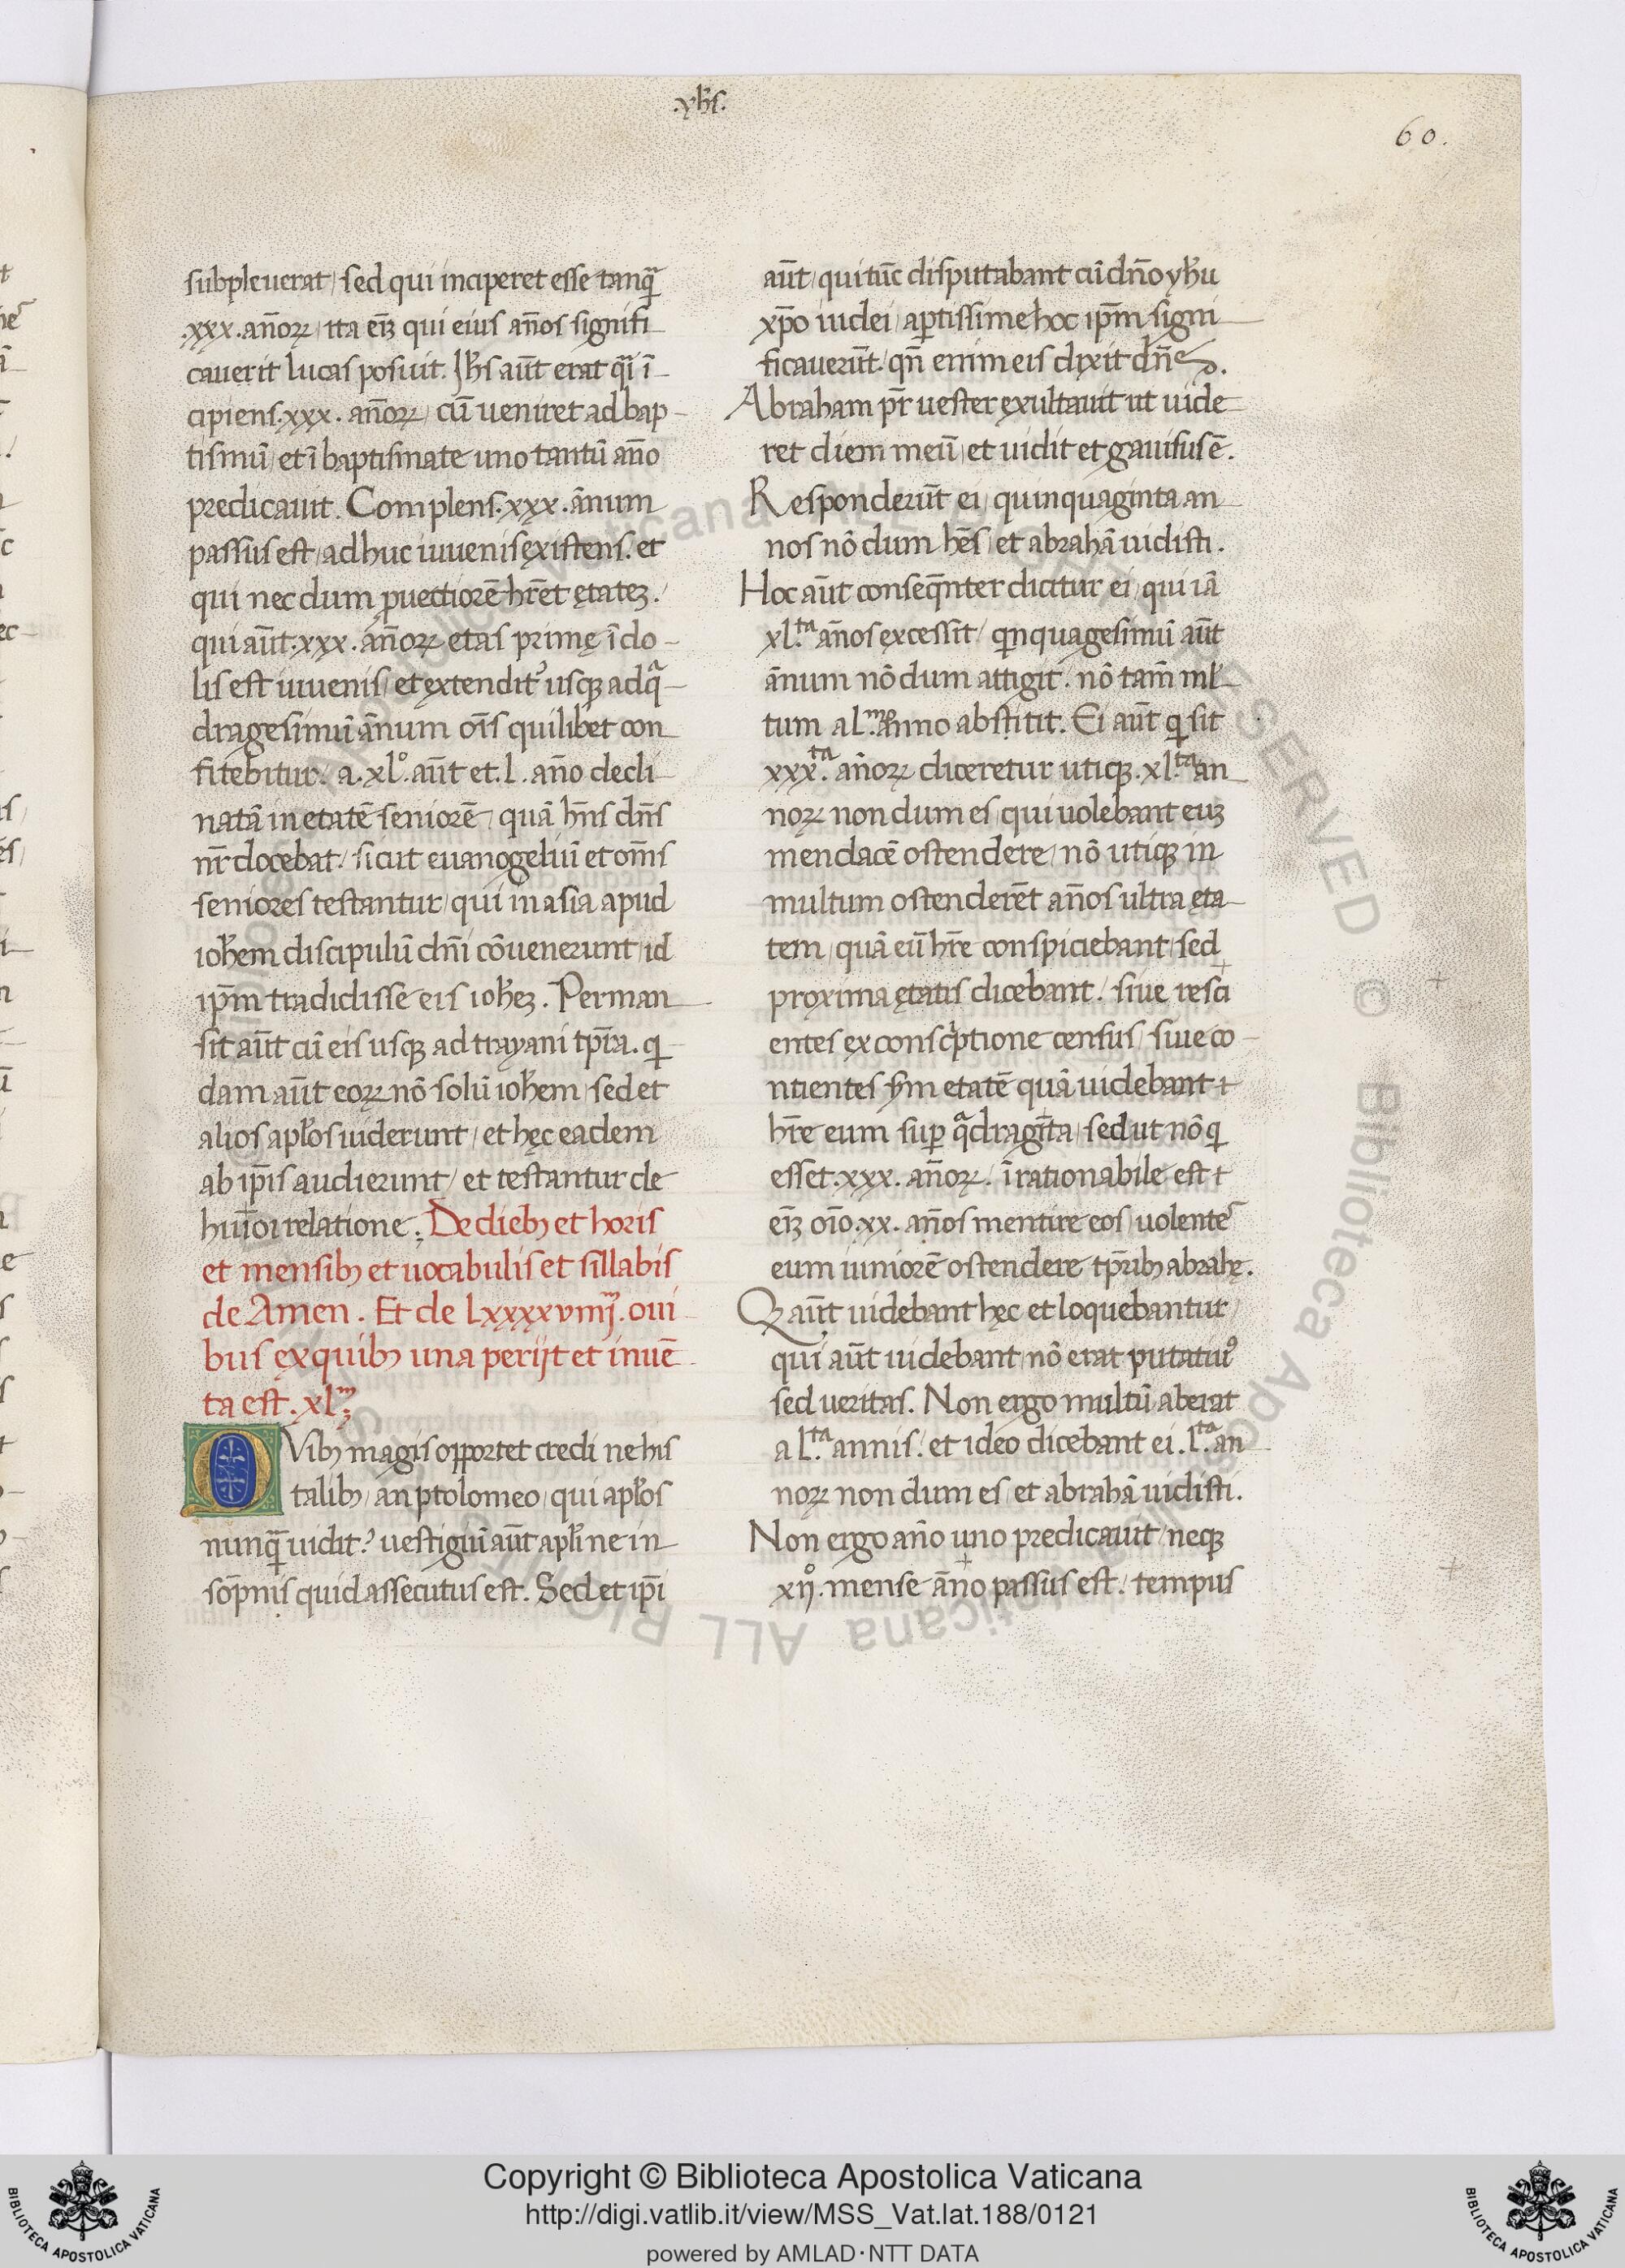 .yh̄s.
60.
subpleuerat / sed qui inciperet esse tanqͣ
.xxx. an̄oꝝ / ita etiꝫ qui eius an̄os signifi
cauerit lucas posuit. Ih̄s aūt erat qͣi ī
cipiens .xxx. an̄oꝝ / cū ueniret ad bap
tismū / et ī baptismate uno tantū an̄o
predicauit. Complens .xxx. ānum
passus est / adhuc iuuenis ęxistens. et
qui nec dum ꝓuectiorē hr̄et ętateꝫ.
qui aūt .xxx. ān̄oꝝ etas primę īdo
lis est iuuenis / et ęxtendit᷒ usqꝫ ad qͣ
dragesimū ānum om̄s quilibet con
fitebitur. a .xlᵒ. aūt et .l. an̄o decli
natā in etatē seniorē / quā hn̄s dn̄s
nr̄ docebat / sicut euanogeliū et om̄s
seniores testantur / qui in asia apud
ioh̄em discipulū dn̄i cōuenerunt / id
ip̄m tradidisse eis ioh̄eꝫ. Perman
sit aūt cū eis usqꝫ ad trayani tp̄ra. qͥ
dam aūt eoꝝ nō solū ioh̄em / sed et
alios apl̄os uiderunt / et hęc eadem
ab ip̄is audierunt / et testantur de
hui᷒oi relatione ; De diebꝫ et horis
et mensibꝫ et uocabulis et sillabis
de Amen. Et de lxxxxviiij. oui
bus ęx quibꝫ una perijt et inuē
ta est. xlᵐ;
QVibꝫ magis opportet credi ne his
talibꝫ / an ptolomeo / qui apl̄os
nunqͣ uidit? uestigiū aūt apl̄i ne in
sōpnis quid assecutus est. Sed et ip̄i
aūt / qui tūc disputabant cū dn̄o yh̄u
xp̄o iudei / aꝑtissime hoc ip̄m signi
ficauerūt. qn̄ enim eis dixit dn̄s.
Abraham pr̄ uester ęxultauit ut uide
ret diem meū / et uidit et gauisus ē.
Responderūt ei / quinquaginta an
nos nō dum hēs / et abrahā uidisti.
Hoc aūt conseqn̄ter dicitur ei / qui iā
xl.ᵗᵃ an̄os ęxcessit / qͥnquagesimū aūt
ānum nō dum attigit. nō tam̄ ml̄
tum a l.ᵐᵒ anno abstitit. Ei aūt qͥ sit
xxx.ᵗᵃ an̄oꝝ diceretur utiqꝫ .xl.ᵗᵃ an
noꝝ non dum es / qui uolebant euꝫ
mendacē ostendere / nō utiqꝫ in
multum ostenderēt an̄os ultra ęta
tem / quā eū hr̄e conspiciebant / sed
proxima ętatis dicebant / siue resci
entes ęx conscͥptione census / siue co
ntientes ꝯm etatē quā uidebant
hr̄e eum suꝑ qͣdragīta / sed ut nō qͥ
esset .xxx. an̄oꝝ. īrationabile est
etiꝫ oīo .xx. an̄os mentire eos / uolentes
eum iuniorē ostendere tp̄ribꝫ abrahę.
Q aūt uidebant hęc et loquebantur /
qui aūt uidebant / nō erat putatiu᷒
sed ueritas. Non ergo multū aberat
a l.ᵗᵃ annis. et ideo dicebant ei .l.ᵗᵃ an
noꝝ non dum es / et abrahā uidisti.
Non ergo an̄o uno predicauit / neqꝫ
xijᵒ. mense ān̄o passus est. tempus
Copyright © Biblioteca Apostolica Vaticana
http://digi.vatlib.it/view/MSS_Vat.lat.188/0121
powered by AMLAD·NTT DATA